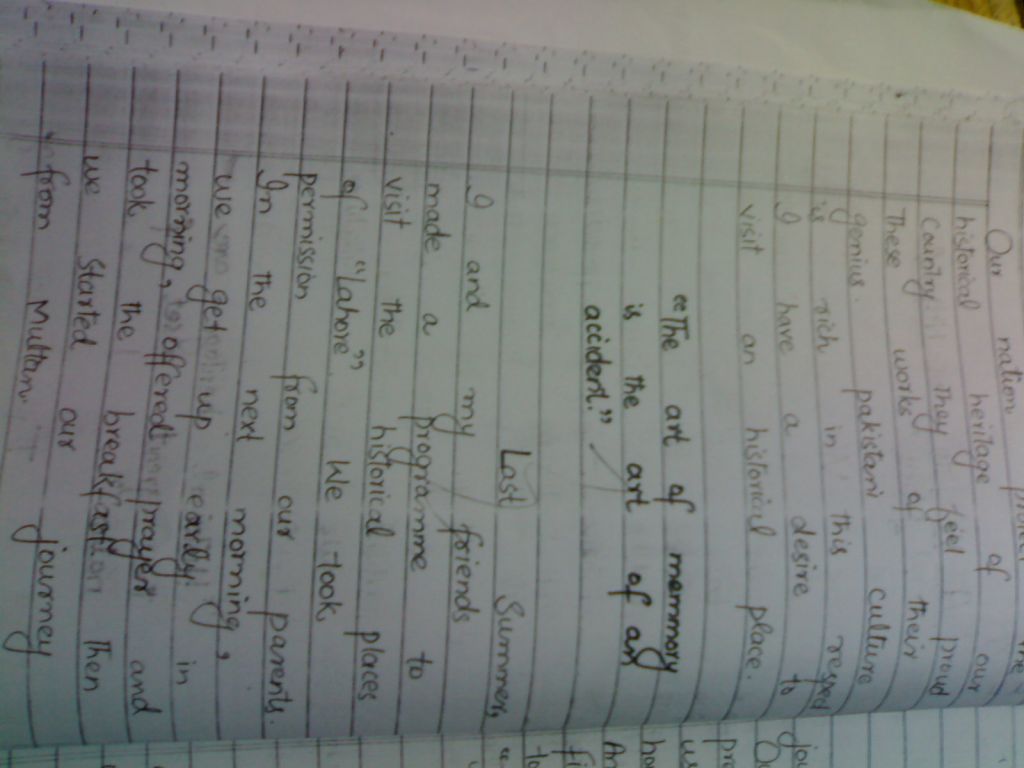 the
Our nation
historical heritage of our
country they feel proud
These works of their
genius. pakistani culture
is rich in this respect
I have a desire to
visit an historical place.
"The art of memmory
is the art of an
accident."
Last Summer,
I and my friends
made a programme to
visit the historical places
of "Lahore" We took
permission from our parents.
In the next morning,
we get up early in
morning, offered prayer and
took the breakfast Then
we started our journey
from Multan.